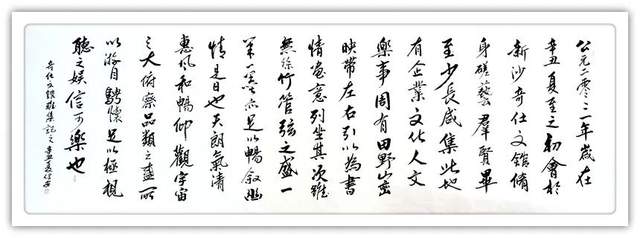 公元二零二一年歲在
辛丑夏至之初會於
新沙奇仕文館脩
身磋藝群賢畢
至少長咸集此地
有企業文化人文
樂事周有田野山巒
映帶左右引以為書
情畫意列坐其次雖
無絲竹管弦之盛一
筆一墨亦足以暢敘幽
情是日也天朗氣清
惠風和暢仰觀宇宙
之大俯察品類之盛所
以游目騁懷足以極視
聽之娛信可樂也
奇仕文館雅集記之辛丑夏